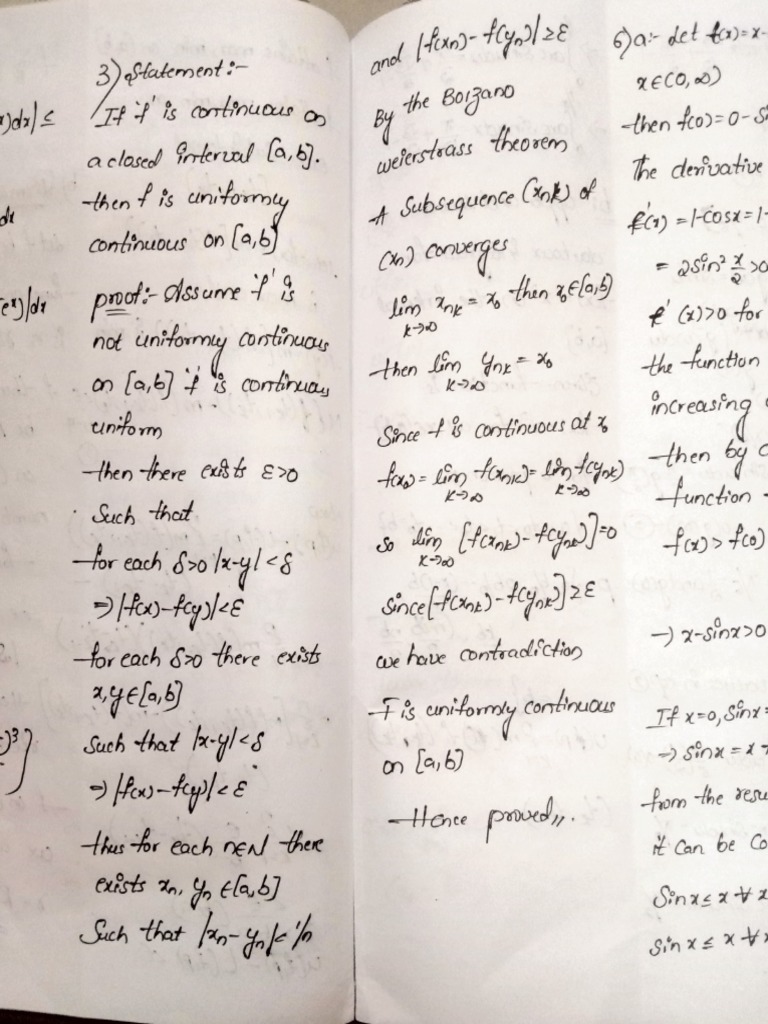 x)dx| ≤
dx
e^x)|dx
)³
3) Statement:-
If 'f' is continuous on
a closed interval [a,b].
then f is uniformly
continuous on [a,b]
proof:- Assume 'f' is
not uniformly continuous
on [a,b] 'f' is continuous
uniform
then there exists ε>0
Such that
for each δ>0 |x-y|<δ
⇒ |f(x)-f(y)|<ε
for each δ>0 there exists
x,y∈[a,b]
Such that |x-y|<δ
⇒ |f(x)-f(y)|<ε
thus for each n∈N there
exists xₙ, yₙ ∈[a,b]
Such that |xₙ-yₙ|<1/n
and |f(xₙ)-f(yₙ)|≥ε
By the Bolzano
weierstrass theorem
A Subsequence (xₙₖ) of
(xₙ) converges
lim xₙₖ = x₀ then x₀∈[a,b]
k→∞
then lim yₙₖ = x₀
k→∞
Since f is continuous at x₀
f(x₀)= lim f(xₙₖ)= lim f(yₙₖ)
k→∞ k→∞
so lim [f(xₙₖ)-f(yₙₖ)]=0
k→∞
Since [f(xₙₖ)-f(yₙₖ)]≥ε
we have contradiction
f is uniformly continuous
on [a,b]
Hence proved,,.
6)a:- let f(x)=x-
x∈(0,∞)
then f(0)=0-Si
The derivative
f'(x) =1-cosx=1-
= 2sin² x/2 >0
f'(x)>0 for
the function
increasing
then by
function
f(x)>f(0)
→ x-sinx>0
If x=0, sinx=
→ sinx = x
from the resu
it can be co
Sinx ≤ x ∀ x
sinx ≤ x ∀ x